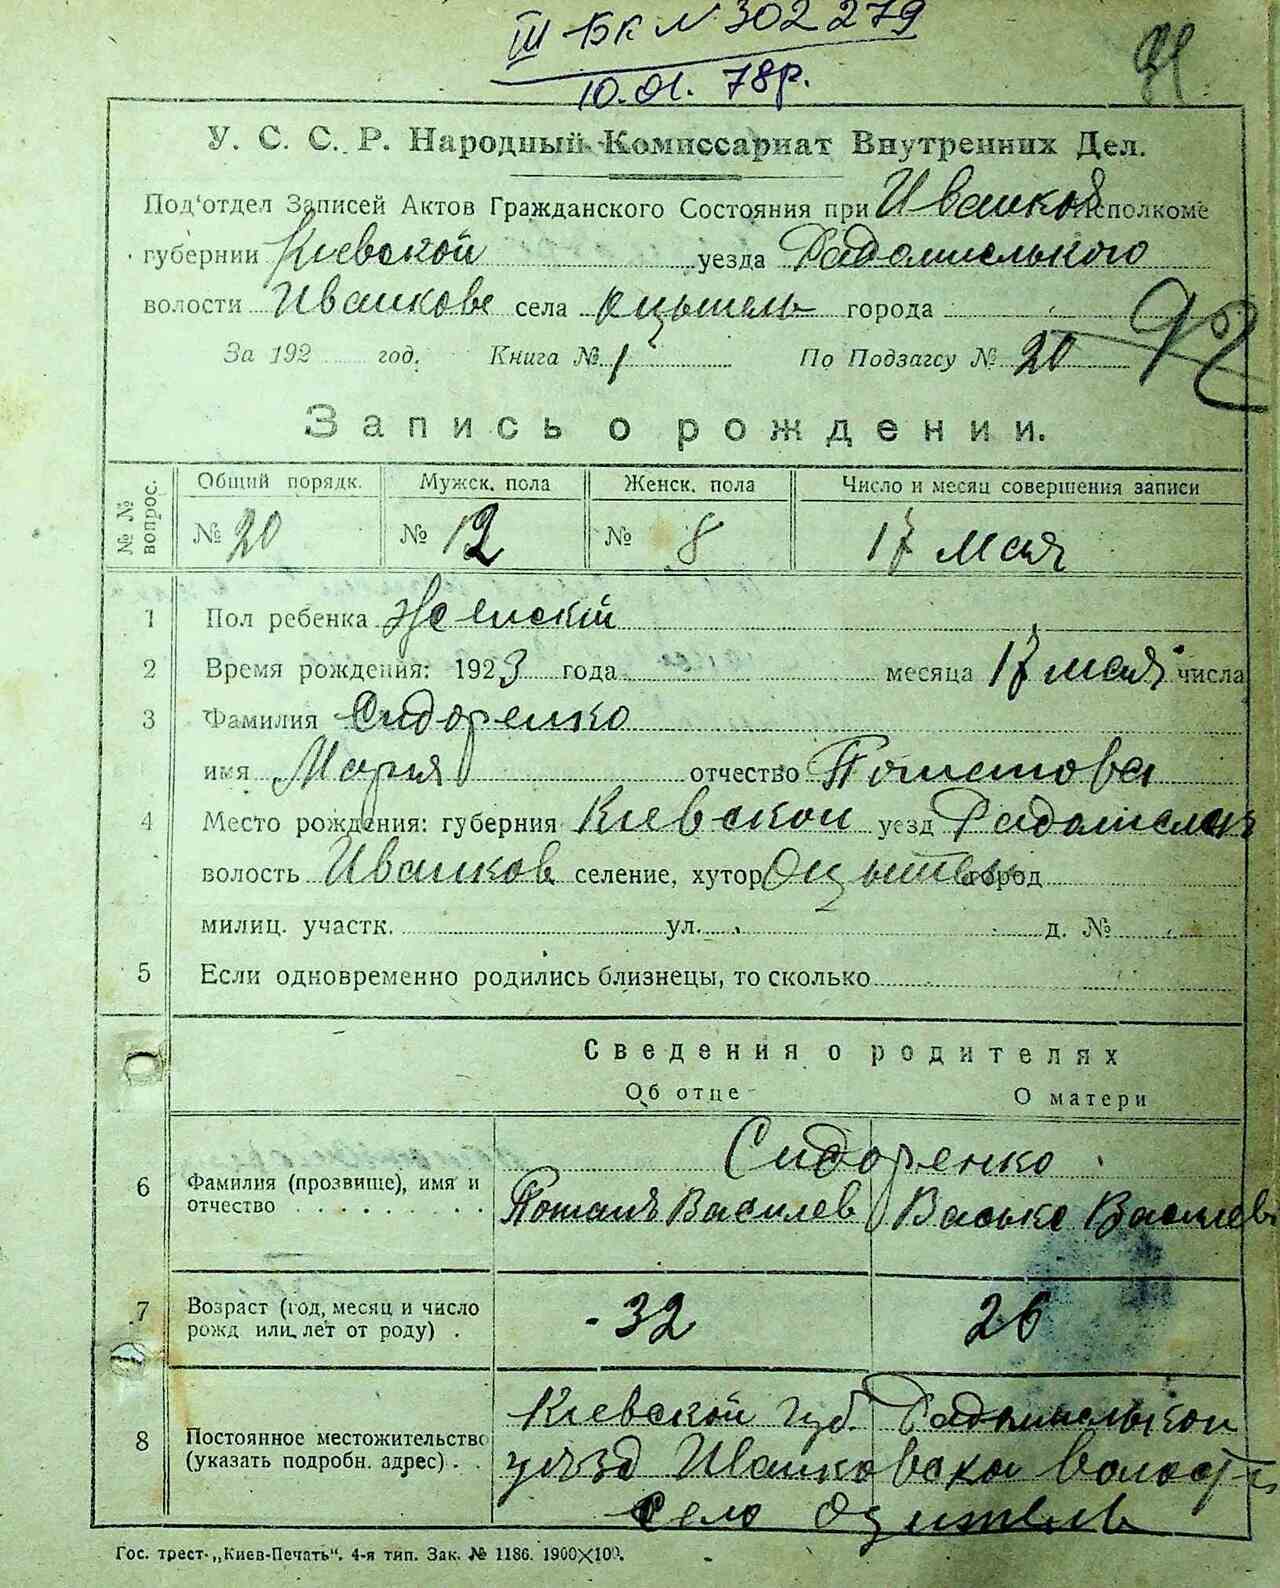 III БК N 302279
10.01.78р.
У. С. С. Р. Народный Комиссариат Внутренних Дел.
Под'отдел Записей Актов Гражданского Состояния при Иванков Исполкоме
губернии Киевской уезда Радомысльского
волости Иванкове села города
За 192 год. Книга № 1 По Подзагсу № 20
92
Запись о рождении.
№ № вопрос.
Общий порядк. Мужск. пола Женск. пола Число и месяц совершения записи
№ 20 № 12 № 8 17 мая
1 Пол ребенка Женскій
2 Время рождения: 1923 года месяца 17 мая числа
3 Фамилия Сидоренко
имя Мария отчество
4 Место рождения: губерния Киевской уезд
волость Иванков селение, хутор город
милиц. участк. ул. д. №
5 Если одновременно родились близнецы, то сколько
Сведения о родителях
Об отце О матери
Сидоренко
6 Фамилия (прозвище), имя и
отчество
Потапъ Василев
7 Возраст (год, месяц и число
рожд или лет от роду) .
32 26
8 Постоянное местожительство
(указать подробн. адрес) . .
Киевской губ.
уезд Иванковской волости
село
Гос. трест „Киев-Печать“. 4-я тип. Зак. № 1186. 1900×100.